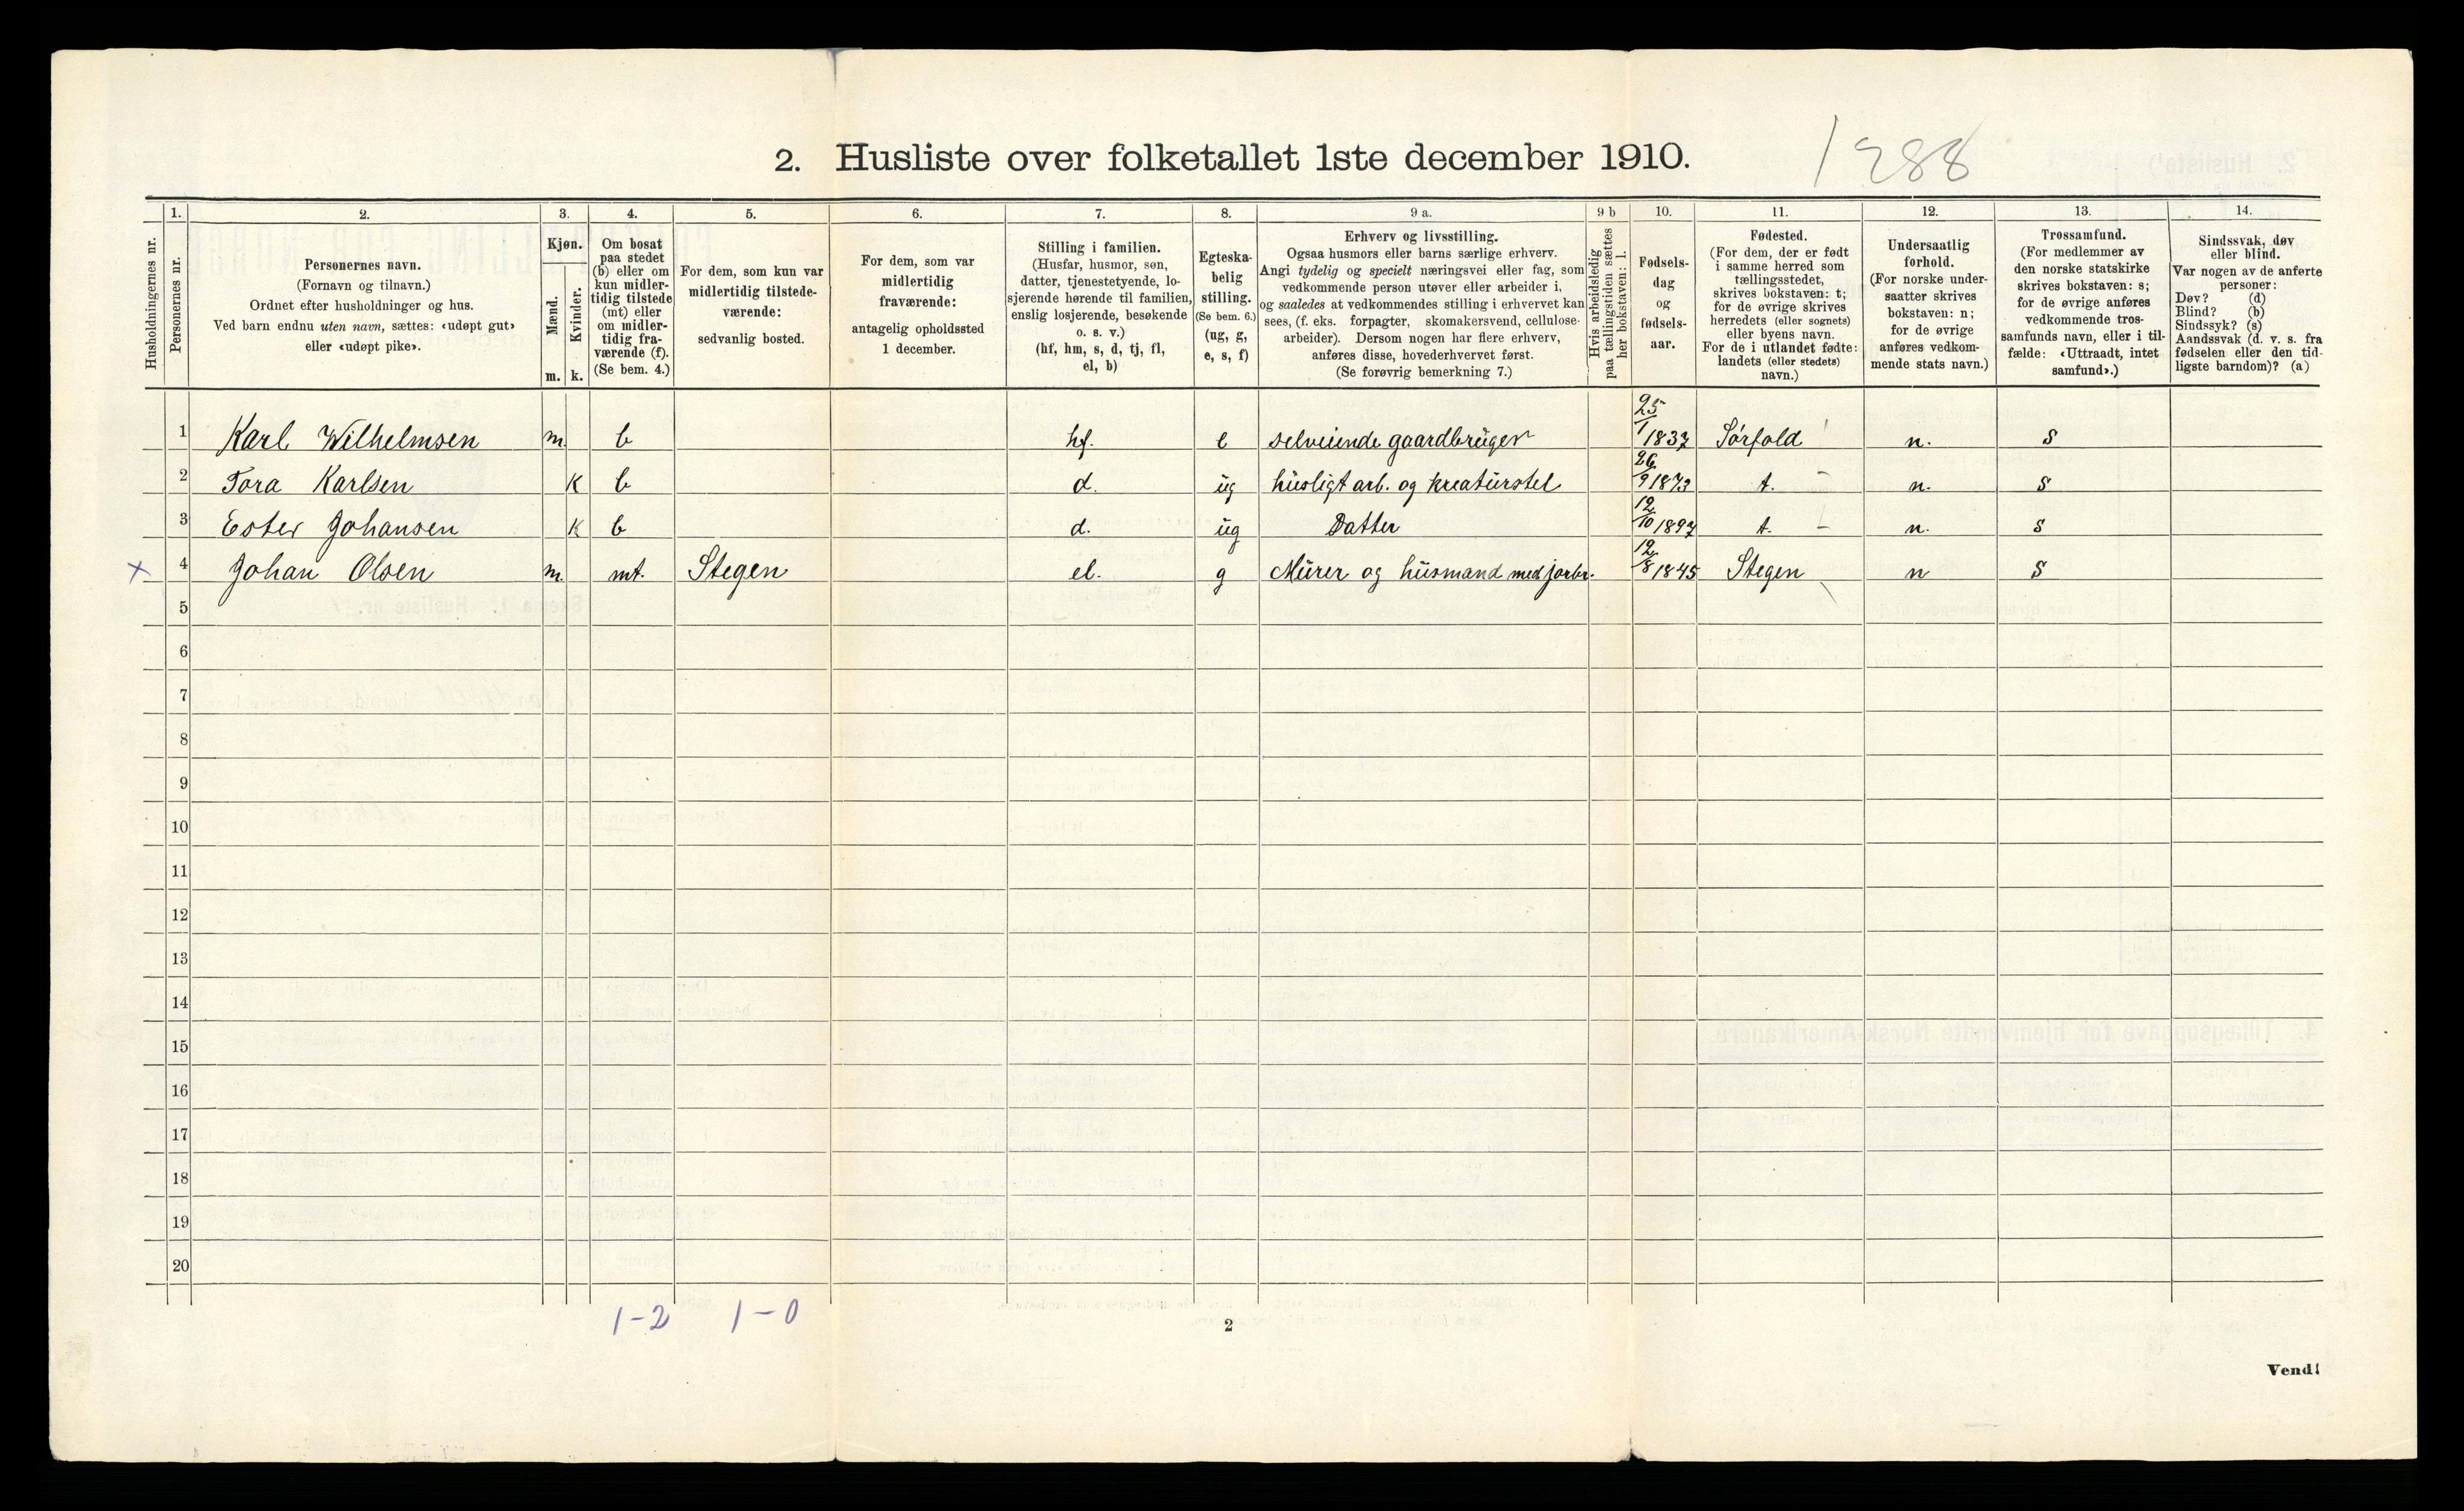 2. Husliste over folketallet 1ste december 1910.
1288
Husholdningernes nr.
1.
Personernes nr.
2.
Personernes navn.
(Fornavn og tilnavn.)
Ordnet efter husholdninger og hus.
Ved barn endnu uten navn, sættes: «udøpt gut»
eller «udøpt pike».
3.
Kjøn.
Mænd.
Kvinder.
m. k.
4.
Om bosat
paa stedet
(b) eller om
kun midler-
tidig tilstede
(mt) eller
om midler-
tidig fra-
værende (f).
(Se bem. 4.)
5.
For dem, som kun var
midlertidig tilstede-
værende:
sedvanlig bosted.
6.
For dem, som var
midlertidig
fraværende:
antagelig opholdssted
1 december.
7.
Stilling i familien.
(Husfar, husmor, søn,
datter, tjenestetyende, lo-
sjerende hørende til familien,
enslig losjerende, besøkende
o. s. v.)
(hf, hm, s, d, tj, fl,
el, b)
8.
Egteska-
belig
stilling.
(Se bem. 6.)
(ug, g,
e, s, f)
9 a.
Erhverv og livsstilling.
Ogsaa husmors eller barns særlige erhverv.
Angi tydelig og specielt næringsvei eller fag, som
vedkommende person utøver eller arbeider i,
og saaledes at vedkommendes stilling i erhvervet kan
sees, (f. eks. forpagter, skomakersvend, cellulose-
arbeider). Dersom nogen har flere erhverv,
anføres disse, hovederhvervet først.
(Se forøvrig bemerkning 7.)
9 b
Hvis arbeidsledig
paa tællingstiden sættes
her bokstaven: l.
10.
Fødsels-
dag
og
fødsels-
aar.
11.
Fødested.
(For dem, der er født
i samme herred som
tællingsstedet,
skrives bokstaven: t;
for de øvrige skrives
herredets (eller sognets)
eller byens navn.
For de i utlandet fødte:
landets (eller stedets)
navn.)
12.
Undersaatlig
forhold.
(For norske under-
saatter skrives
bokstaven: n;
for de øvrige
anføres vedkom-
mende stats navn.)
13.
Trossamfund.
(For medlemmer av
den norske statskirke
skrives bokstaven: s;
for de øvrige anføres
vedkommende tros-
samfunds navn, eller i til-
fælde: «Uttraadt, intet
samfund».)
14.
Sindssvak, døv
eller blind.
Var nogen av de anførte
personer:
Døv? (d)
Blind? (b)
Sindssyk? (s)
Aandssvak (d. v. s. fra
fødselen eller den tid-
ligste barndom)? (a)
1 Karl Wilhelmsen m. b hf. e selveiende gaardbruger 25/1 1837 Sørfold n. s
2 Tora Karlsen k b d. ug husligt arb. og kreaturstel 26/9 1873 t. n. s
3 Ester Johansen k b d. ug Datter 12/10 1897 t. n. s
x 4 Johan Olsen m. mt. Stegen el. g Murer og husmand med jordbr. 12/8 1845 Stegen n s
5
6
7
8
9
10
11
12
13
14
15
16
17
18
19
20
1-2 1-0
2
Vend!